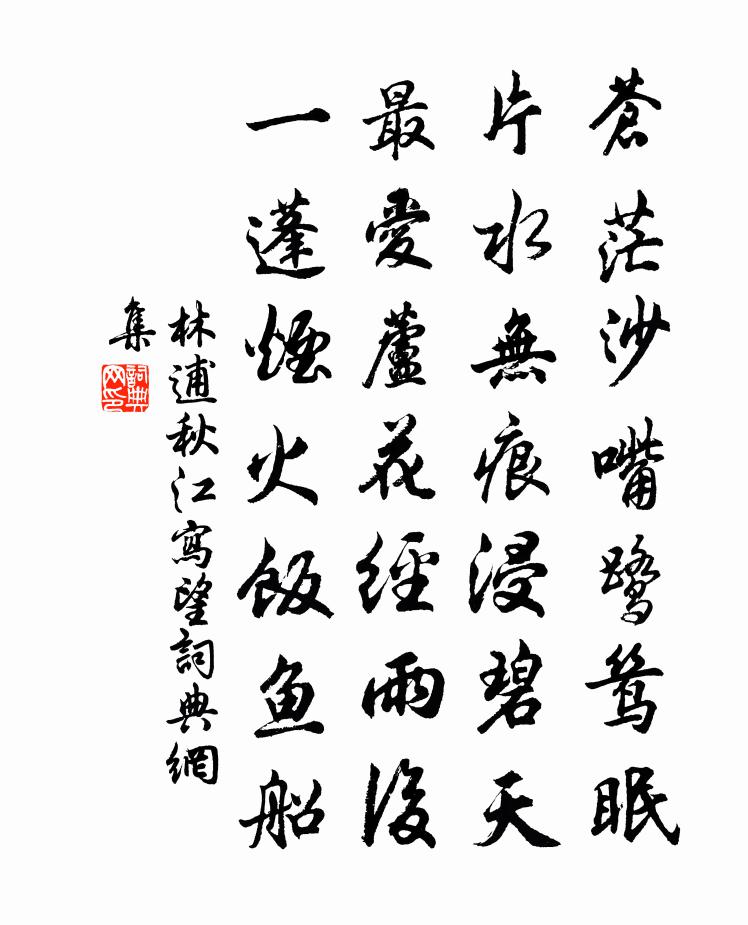 蒼茫沙嘴鷺鷥眠
片水無痕浸碧天
最愛蘆花經雨後
一蓬煙火飯魚船
林逋秋江寫望詞典網
集
詞典网印